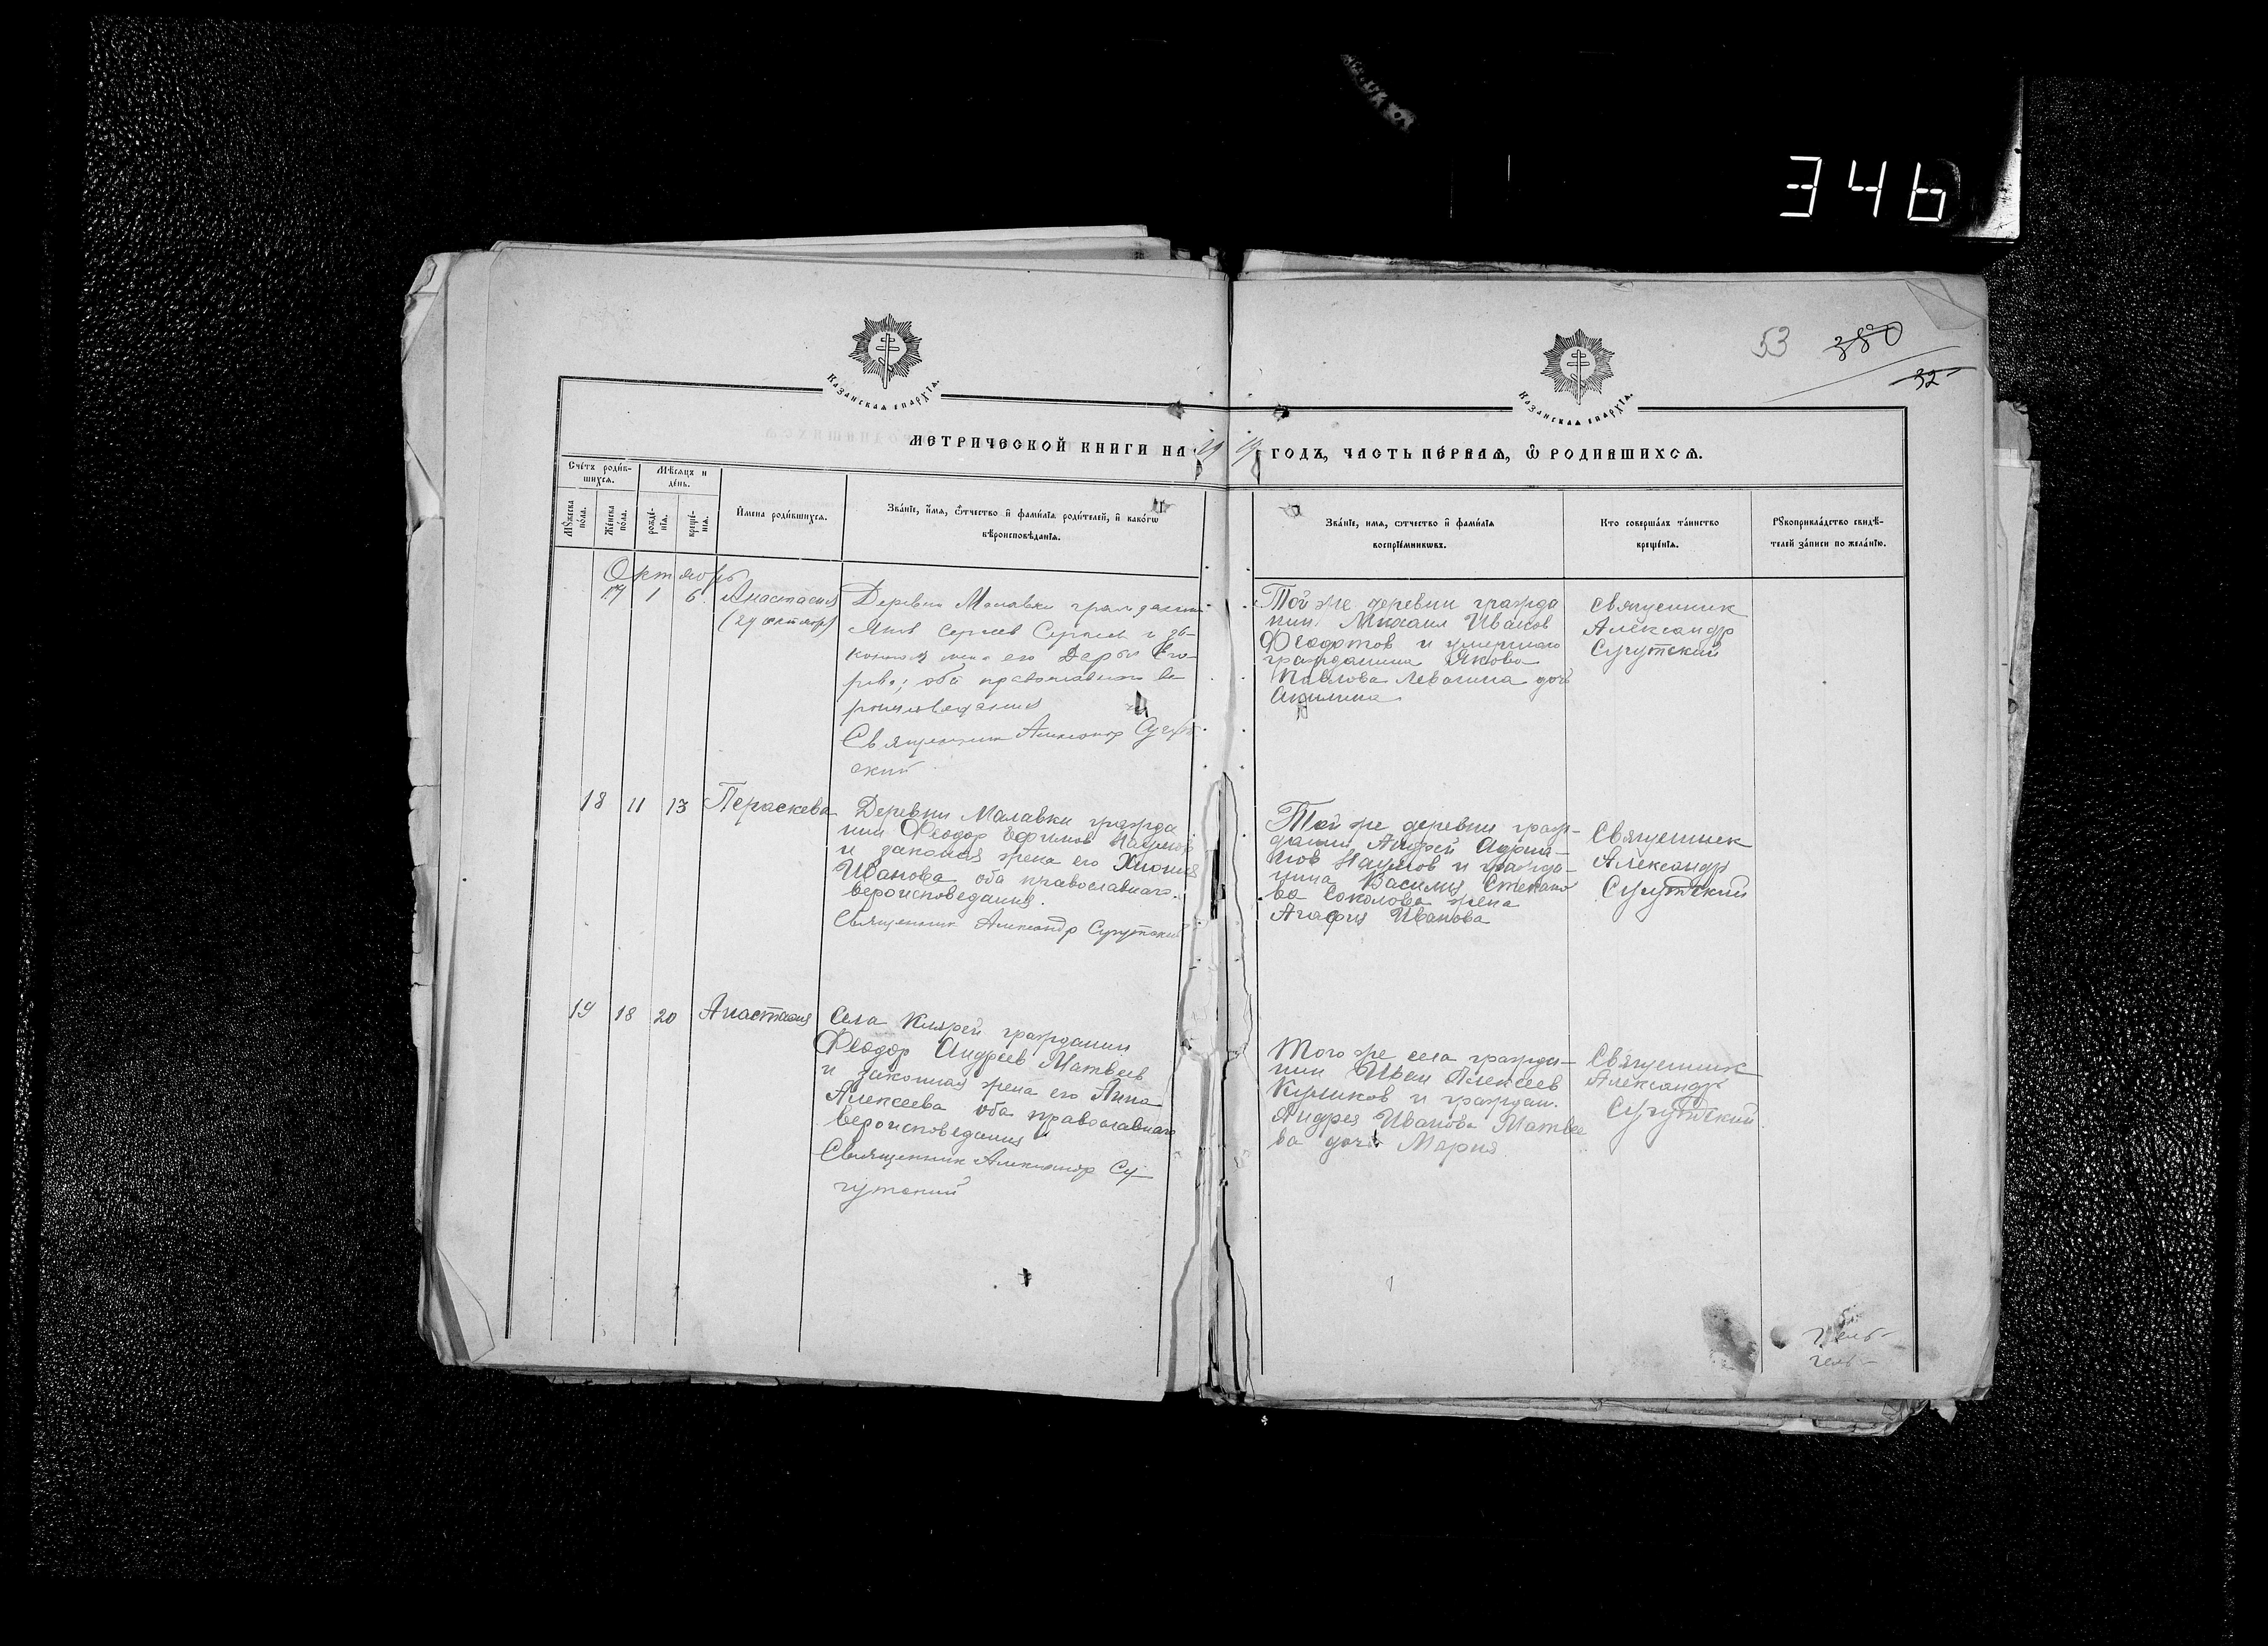 346
53 380
32
Казанская епархїѧ.
Казанская епархїѧ.
МЕТРИЧЕСКОЙ КНИГИ НА 1919 ГОДЪ, ЧАСТЬ ПЕ́РВАЯ, Ѿ РОДИВШИХСЯ.
Сче́тъ роди́в-
шихсѧ.
Мѣ́сѧцъ и
де́нь.
Мꙋ́жеска
по́ла.
Же́нска
по́ла.
рожде́-
нїѧ.
креще́-
нїѧ.
И́мена роди́вшихсѧ.
Зва́нїе, и́мѧ, ѻ҆́тчество и҆ фами́лїѧ роди́телей, и҆ како́гѡ
вѣроисповѣ́данїѧ.
Зва́нїе, имѧ, ѻтчество и҆ фами́лїѧ
воспрїе́мникѡвъ.
Кто соверша́лъ та́инство
креще́нїѧ.
Рꙋкоприкла́дство свидѣ́-
телей за́писи по жела́нїю.
Октябрь
17 1 6 Анастасия
(29 октября)
Деревни Малавки гражданин
Яков Сергеев Сергеев и за-
конная жена его Дарья Его-
рова; оба православного ве
роисповедания
Священник Александр Сугут-
ский
Той же деревни гражда
нин Михаил Иванов
Феодотов и умершаго
гражданина Якова
Павлова Левагина дочь
Акилина
Священник
Александр
Сугутский
18 11 13 Параскева
Деревни Малавки гражда
нин Феодор Ефимов Наумов
и законая жена его Хиония
Иванова оба православнаго
вероисповедания.
Священник Александр Сугутский
Той же деревни граж-
данин Андрей Адриа-
нов Наумов и гражда-
нина Василия Степано
ва Соколова жена
Агафия Иванова
Священник
Александр
Сугутский
19 18 20 Анастасия
Села Клярей гражданин
Феодор Андреев Матвеев
и законная жена его Анна
Алексеева оба православнаго
вероисповедания
Священник Александр Су-
гутский
Того же села гражда-
нин Иван Алексеев
Куликов и граждан.
Андрея Иванова Матвее
ва дочь Мария
Священник
Александр
Сугутский.